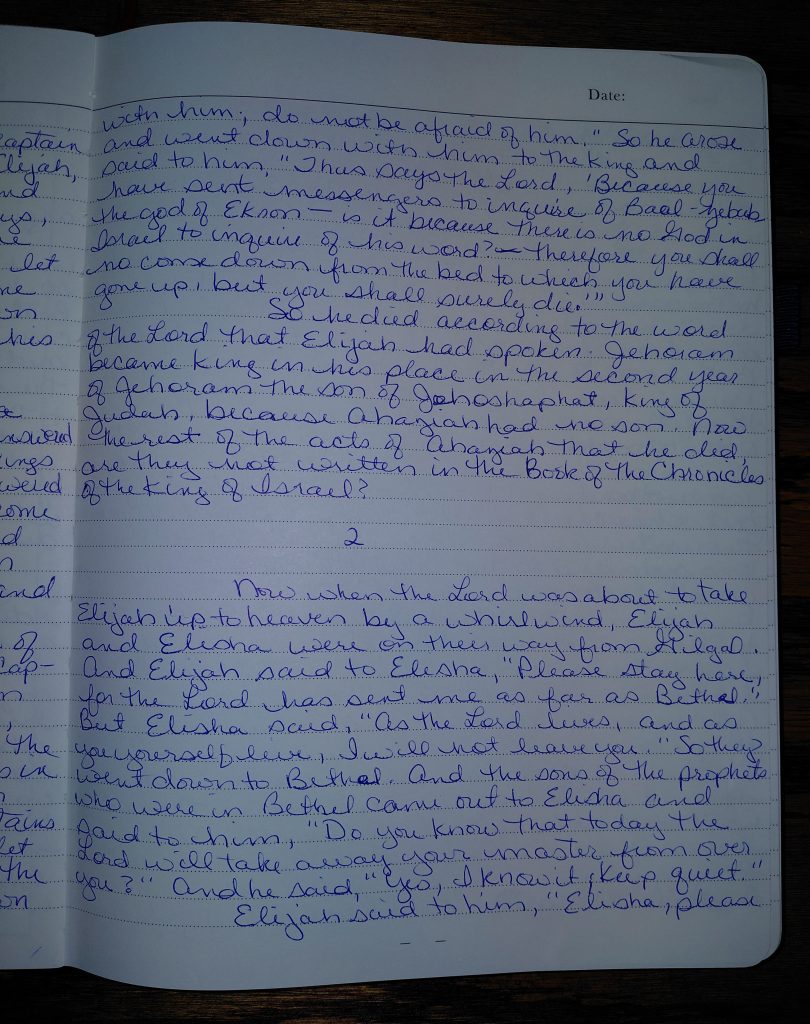 captain
Elijah,
nd
ys,
e
let
me
on
his
answered
ings
wered
come
d
n
and
of
Cap-
n
,
the
s in
tains
let
the
on
Date:
with him; do not be afraid of him." So he arose
and went down with him to the king and
said to him, "Thus says the Lord, 'Because you
have sent messengers to inquire of Baal-zebub
the god of Ekron — is it because there is no God in
Israel to inquire of his word? — therefore you shall
no come down from the bed to which you have
gone up, but you shall surely die.'"
So he died according to the word
of the Lord that Elijah had spoken. Jehoram
became king in his place in the second year
of Jehoram the son of Jehoshaphat, king of
Judah, because Ahaziah had no son. Now
the rest of the acts of Ahaziah that he did,
are they not written in the Book of the Chronicles
of the King of Israel?
2
Now when the Lord was about to take
Elijah up to heaven by a whirlwind, Elijah
and Elisha were on their way from Gilgal.
And Elijah said to Elisha, "Please stay here,
for the Lord has sent me as far as Bethel."
But Elisha said, "As the Lord lives, and as
you yourself live, I will not leave you." So they
went down to Bethel. And the sons of the prophets
who were in Bethel came out to Elisha and
said to him, "Do you know that today the
Lord will take away your master from over
you?" And he said, "Yes, I know it, keep quiet."
Elijah said to him, "Elisha, please